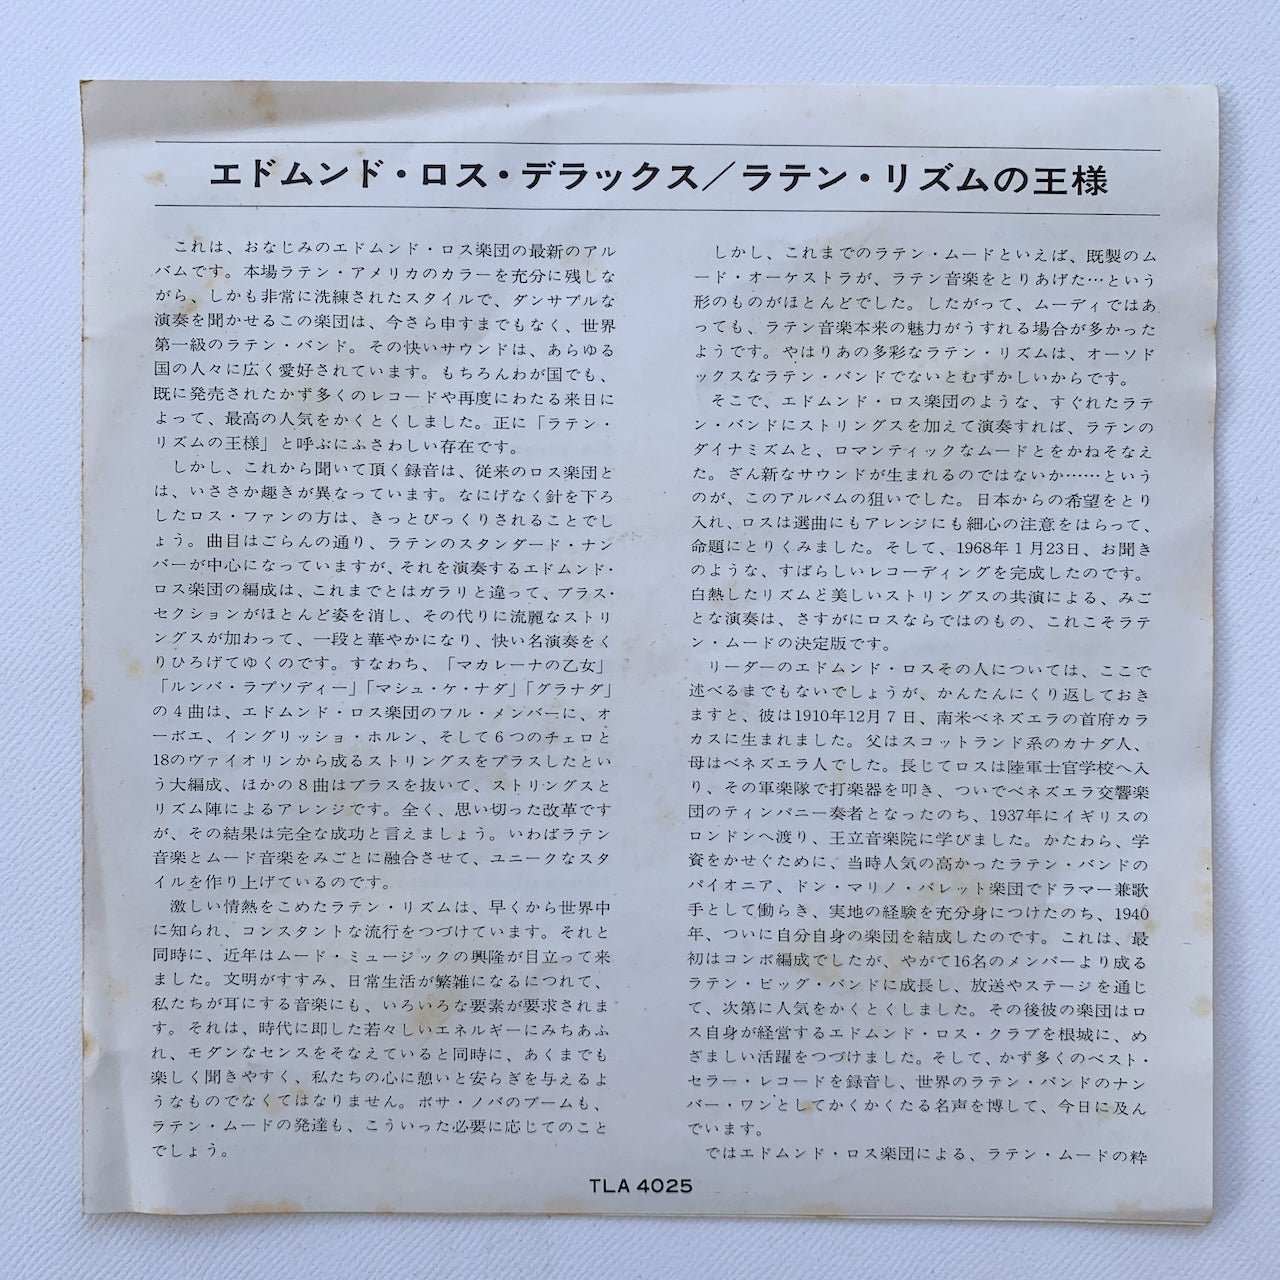 エドムンド・ロス・デラックス／ラテン・リズムの王様
これは、おなじみのエドムンド・ロス楽団の最新のアル
バムです。本場ラテン・アメリカのカラーを充分に残しな
がら、しかも非常に洗練されたスタイルで、ダンサブルな
演奏を聞かせるこの楽団は、今さら申すまでもなく、世界
第一級のラテン・バンド。その快いサウンドは、あらゆる
国の人々に広く愛好されています。もちろんわが国でも、
既に発売されたかず多くのレコードや再度にわたる来日に
よって、最高の人気をかくとくしました。正に「ラテン・
リズムの王様」と呼ぶにふさわしい存在です。
しかし、これから聞いて頂く録音は、従来のロス楽団と
は、いささか趣きが異なっています。なにげなく針を下ろ
したロス・ファンの方は、きっとびっくりされることでし
ょう。曲目はごらんの通り、ラテンのスタンダード・ナン
バーが中心になっていますが、それを演奏するエドムンド・
ロス楽団の編成は、これまでとはガラリと違って、ブラス・
セクションがほとんど姿を消し、その代りに流麗なストリ
ングスが加わって、一段と華やかになり、快い名演奏をく
りひろげてゆくのです。すなわち、「マカレーナの乙女」
「ルンバ・ラプソディー」「マシュ・ケ・ナダ」「グラナダ」
の４曲は、エドムンド・ロス楽団のフル・メンバーに、オ
ーボエ、イングリッショ・ホルン、そして６つのチェロと
18のヴァイオリンから成るストリングスをプラスしたとい
う大編成、ほかの８曲はブラスを抜いて、ストリングスと
リズム陣によるアレンジです。全く、思い切った改革です
が、その結果は完全な成功と言えましょう。いわばラテン
音楽とムード音楽をみごとに融合させて、ユニークなスタ
イルを作り上げているのです。
激しい情熱をこめたラテン・リズムは、早くから世界中
に知られ、コンスタントな流行をつづけています。それと
同時に、近年はムード・ミュージックの興隆が目立って来
ました。文明がすすみ、日常生活が繁雑になるにつれて、
私たちが耳にする音楽にも、いろいろな要素が要求されま
す。それは、時代に即した若々しいエネルギーにみちあふ
れ、モダンなセンスをそなえていると同時に、あくまでも
楽しく聞きやすく、私たちの心に憩いと安らぎを与えるよ
うなものでなくてはなりません。ボサ・ノバのブームも、
ラテン・ムードの発達も、こういった必要に応じてのこと
でしょう。
しかし、これまでのラテン・ムードといえば、既製のム
ード・オーケストラが、ラテン音楽をとりあげた…という
形のものがほとんどでした。したがって、ムーディではあ
っても、ラテン音楽本来の魅力がうすれる場合が多かった
ようです。やはりあの多彩なラテン・リズムは、オーソド
ックスなラテン・バンドでないとむずかしいからです。
そこで、エドムンド・ロス楽団のような、すぐれたラテ
ン・バンドにストリングスを加えて演奏すれば、ラテンの
ダイナミズムと、ロマンティックなムードとをかねそなえ
た。ざん新なサウンドが生まれるのではないか……という
のが、このアルバムの狙いでした。日本からの希望をとり
入れ、ロスは選曲にもアレンジにも細心の注意をはらって、
命題にとりくみました。そして、1968年１月23日、お聞き
のような、すばらしいレコーディングを完成したのです。
白熱したリズムと美しいストリングスの共演による、みご
とな演奏は、さすがにロスならではのもの、これこそラテ
ン・ムードの決定版です。
リーダーのエドムンド・ロスその人については、ここで
述べるまでもないでしょうが、かんたんにくり返しておき
ますと、彼は1910年12月７日、南米ベネズエラの首府カラ
カスに生まれました。父はスコットランド系のカナダ人、
母はベネズエラ人でした。長じてロスは陸軍士官学校へ入
り、その軍楽隊で打楽器を叩き、ついでベネズエラ交響楽
団のティンパニー奏者となったのち、1937年にイギリスの
ロンドンへ渡り、王立音楽院に学びました。かたわら、学
資をかせぐために、当時人気の高かったラテン・バンドの
パイオニア、ドン・マリノ・バレット楽団でドラマー兼歌
手として働らき、実地の経験を充分身につけたのち、1940
年、ついに自分自身の楽団を結成したのです。これは、最
初はコンボ編成でしたが、やがて16名のメンバーより成る
ラテン・ビッグ・バンドに成長し、放送やステージを通じ
て、次第に人気をかくとくしました。その後彼の楽団はロ
ス自身が経営するエドムンド・ロス・クラブを根城に、め
ざましい活躍をつづけました。そして、かず多くのベスト・
セラー・レコードを録音し、世界のラテン・バンドのナン
バー・ワンとしてかくかくたる名声を博して、今日に及ん
でいます。
ではエドムンド・ロス楽団による、ラテン・ムードの粋
TLA 4025